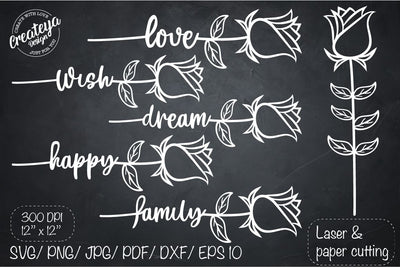 CREATE WITH LOVE
Createya
Design
JUST FOR YOU
love
wish
dream
happy
family
300 DPI
12" x 12"
Laser &
paper cutting
SVG/ PNG/ JPG/ PDF/ DXF/ EPS 10